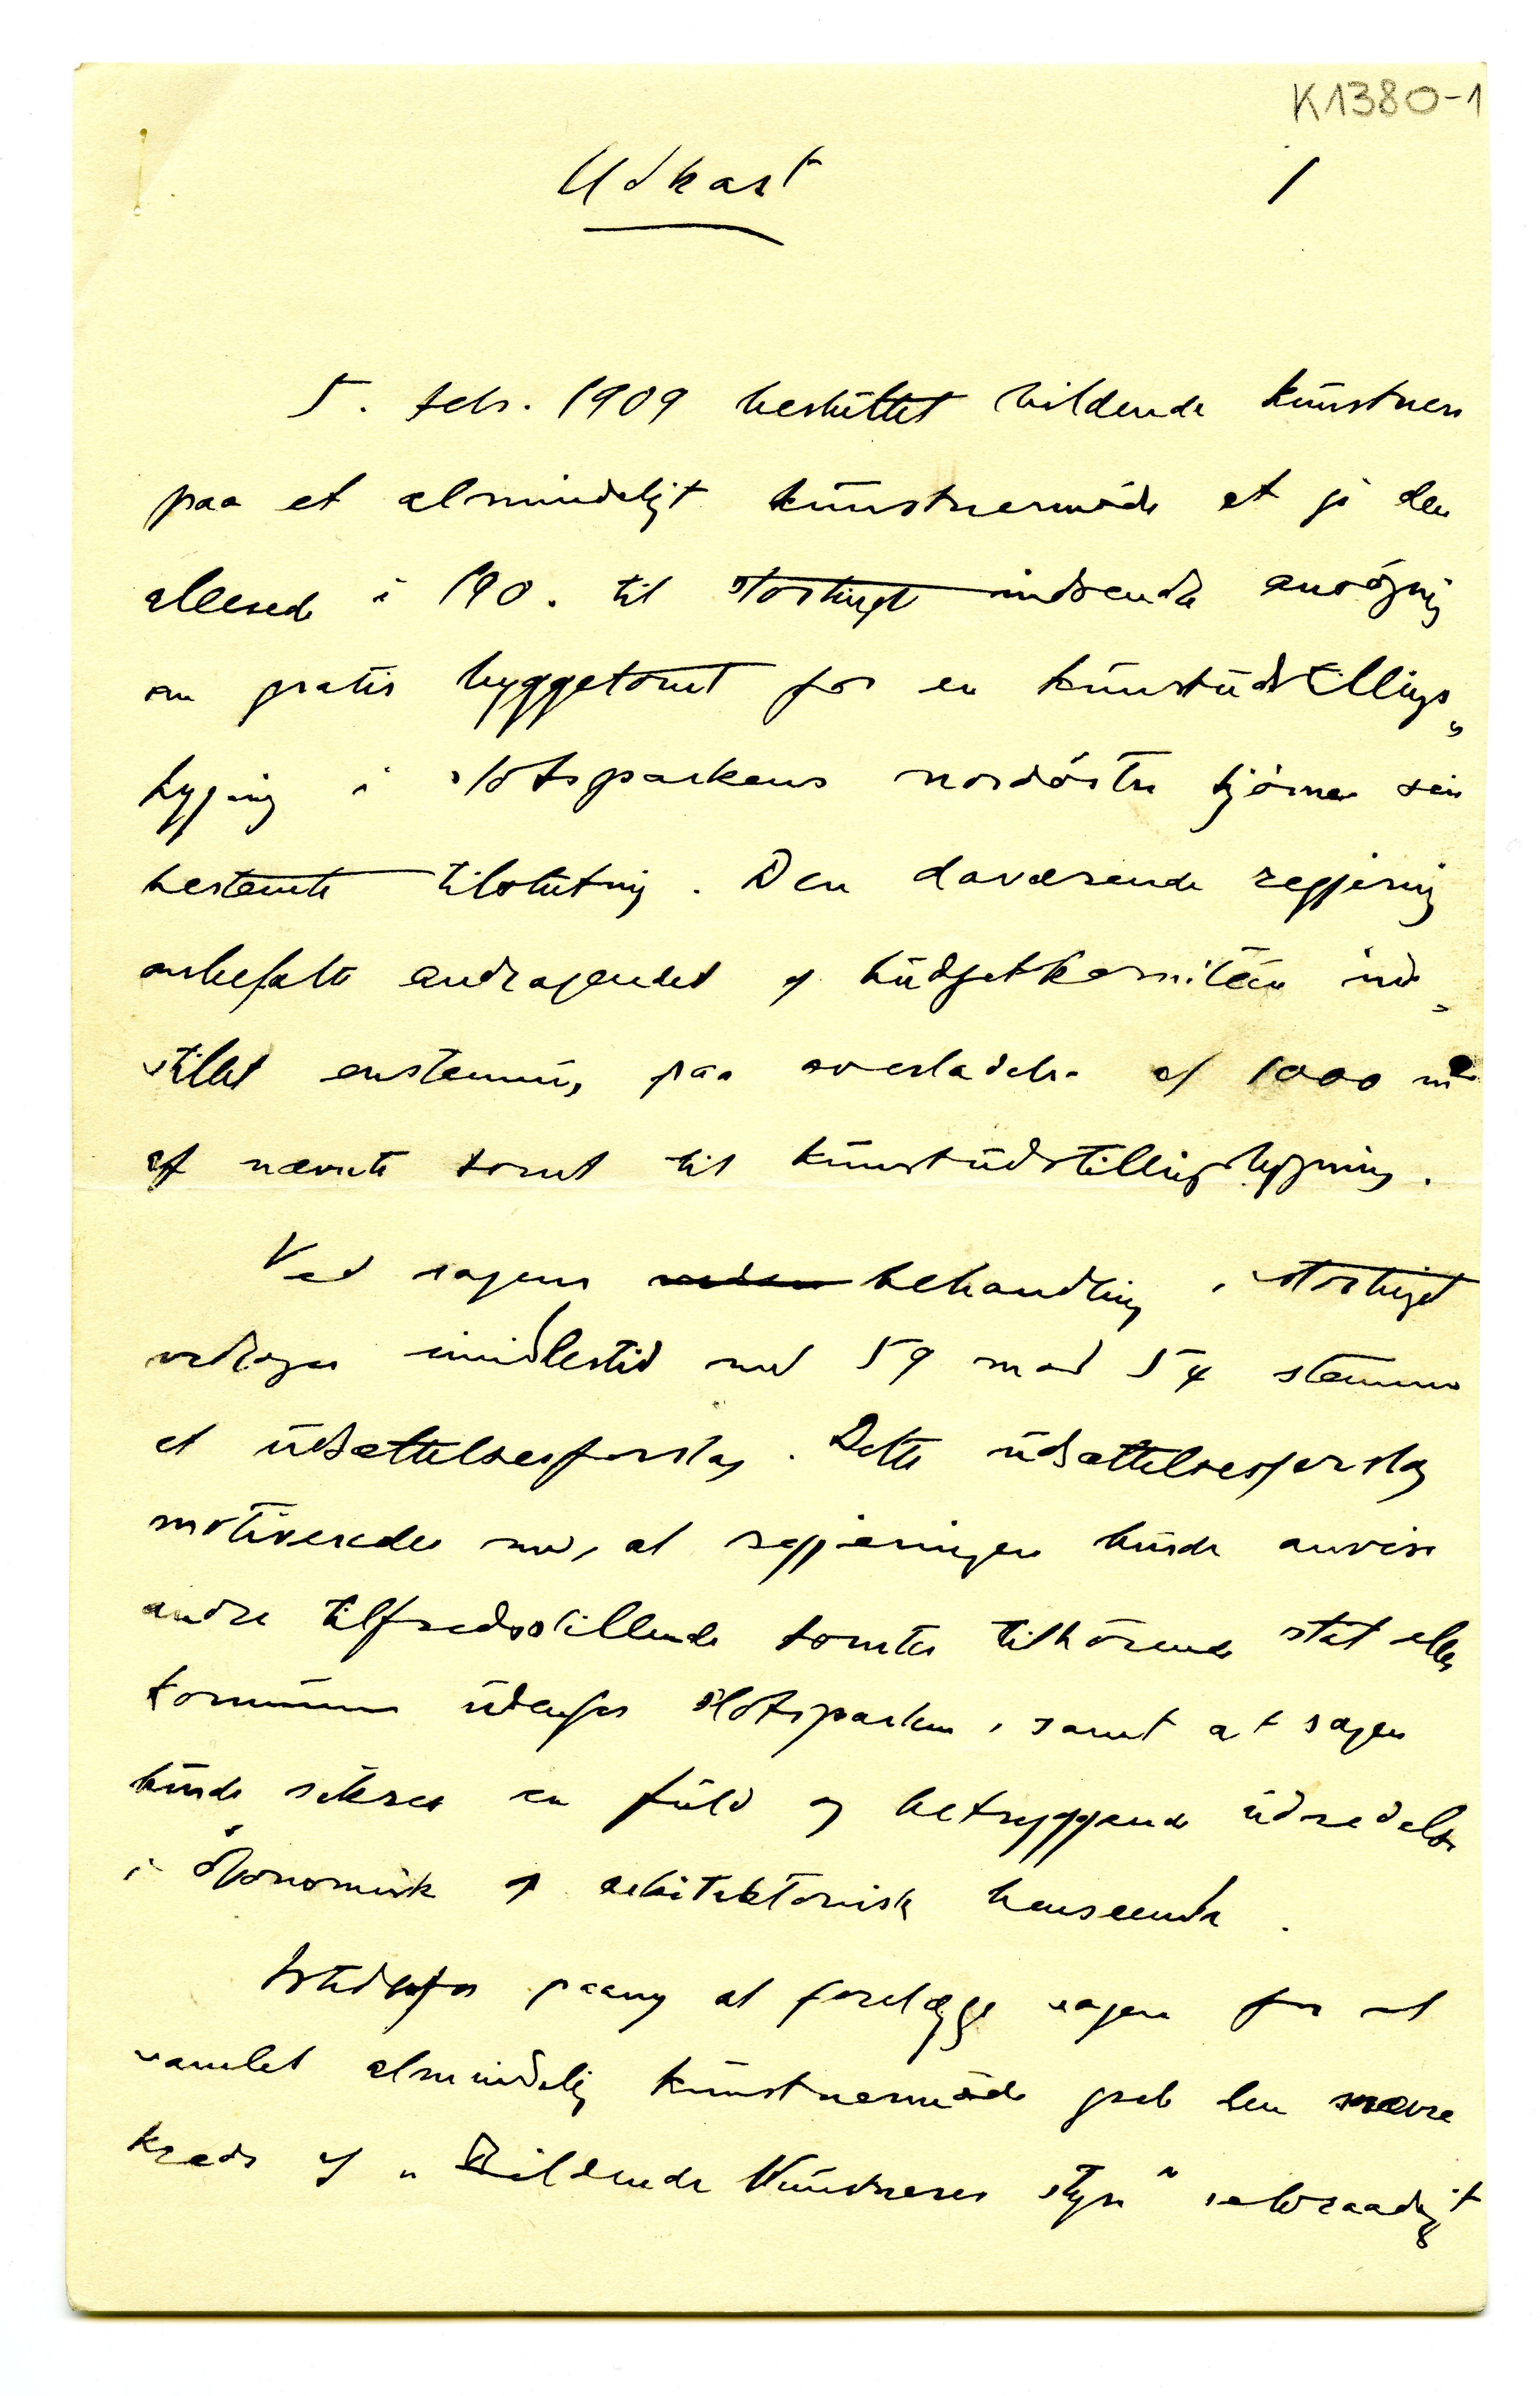 K1380-1
Udkast
1
5. febr. 1909 besluttet bildende kunstnere
paa et almindeligt kunstnermøde at gi den
allerede i 190. til stortinget indsendte ansøgning
om gratis byggetomt for en kunstudstillings„
bygning i slotsparkens nordøstre hjørne sin
bestemte tilslutning. Den daværende regjering
anbefalte andragendet og budgetkomiteen ind„
stillet enstemmig paa overladelse af 1000 m²
af nævnte tomt til kunstudstillingsbygning.
Ved sagens behandling i stortinget
vedtoges imidlertid med 59 mod 54 stemmer
et udsættelsesforslag. Dette udsættelsesforslag
motiveredes med, at regjeringen burde anvise
andre tilfredsstillende tomter tilhørende stat eller
kommune udenfor slotsparken, samt at sagen
burde sikres en fuld og betryggende udredelse
i økonomisk og arkitektonisk henseende.
Istedetfor paany at forelægge sagen for et
samlet almindelig kunstnermøde greb den snevre
kreds af „Bildende Kunstneres styre“ selvraadigt